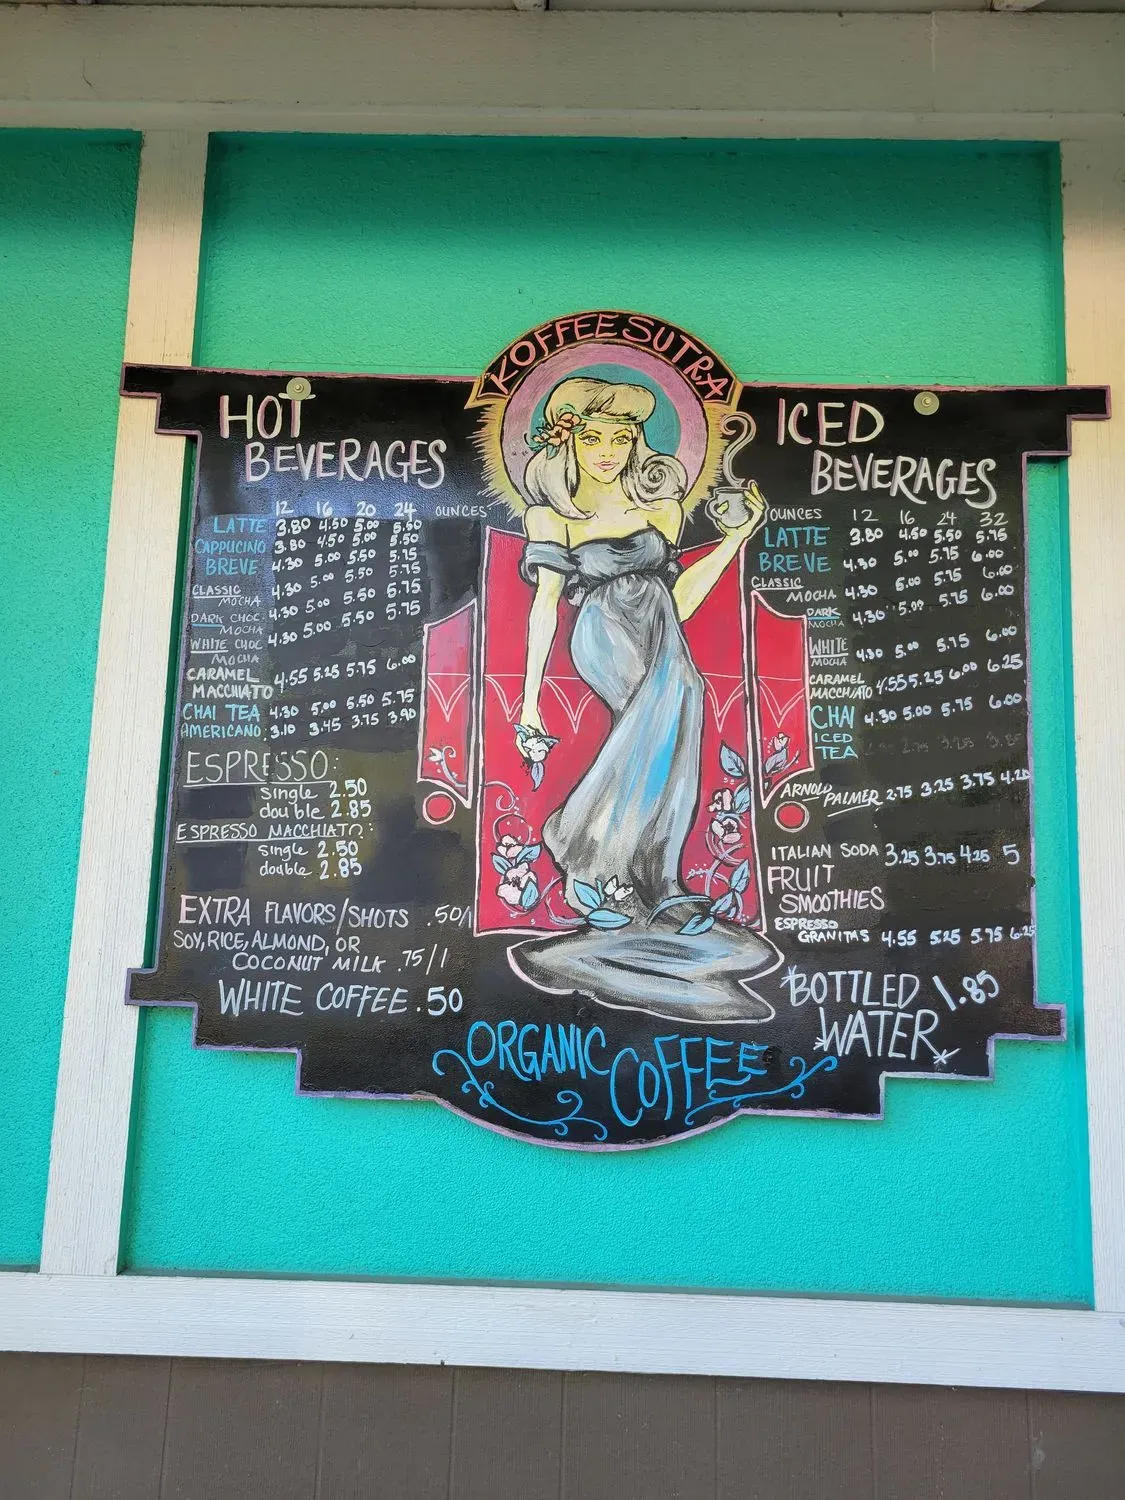 KOFFEE SUTRA
HOT
BEVERAGES
12 16 20 24 OUNCES
LATTE 3.80 4.50 5.00 5.50
CAPPUCINO 3.80 4.50 5.00 5.50
BREVE 4.30 5.00 5.50 5.75
CLASSIC
MOCHA 4.30 5.00 5.50 5.75
DARK CHOC
MOCHA 4.30 5.00 5.50 5.75
WHITE CHOC
MOCHA 4.30 5.00 5.50 5.75
CARAMEL
MACCHIATO 4.55 5.25 5.75 6.00
CHAI TEA 4.30 5.00 5.50 5.75
AMERICANO: 3.10 3.45 3.75 3.90
ESPRESSO:
single 2.50
double 2.85
ESPRESSO MACCHIATO:
single 2.50
double 2.85
EXTRA FLAVORS/SHOTS .50/1
SOY, RICE, ALMOND, OR
COCONUT MILK .75/1
WHITE COFFEE .50
ICED
BEVERAGES
OUNCES 12 16 24 32
LATTE 3.80 4.50 5.50 5.75
BREVE 4.30 5.00 5.75 6.00
CLASSIC
MOCHA 4.30 5.00 5.75 6.00
DARK
MOCHA 4.30 5.00 5.75 6.00
WHITE
MOCHA 4.30 5.00 5.75 6.00
CARAMEL
MACCHIATO 4.55 5.25 6.00 6.25
CHAI 4.30 5.00 5.75 6.00
ICED
TEA
ARNOLD PALMER 2.75 3.25 3.75 4.20
ITALIAN SODA 3.25 3.75 4.25 5
FRUIT
SMOOTHIES
ESPRESSO
GRANITAS 4.55 5.25 5.75 6.25
*BOTTLED 1.85
WATER*
ORGANIC COFFEE